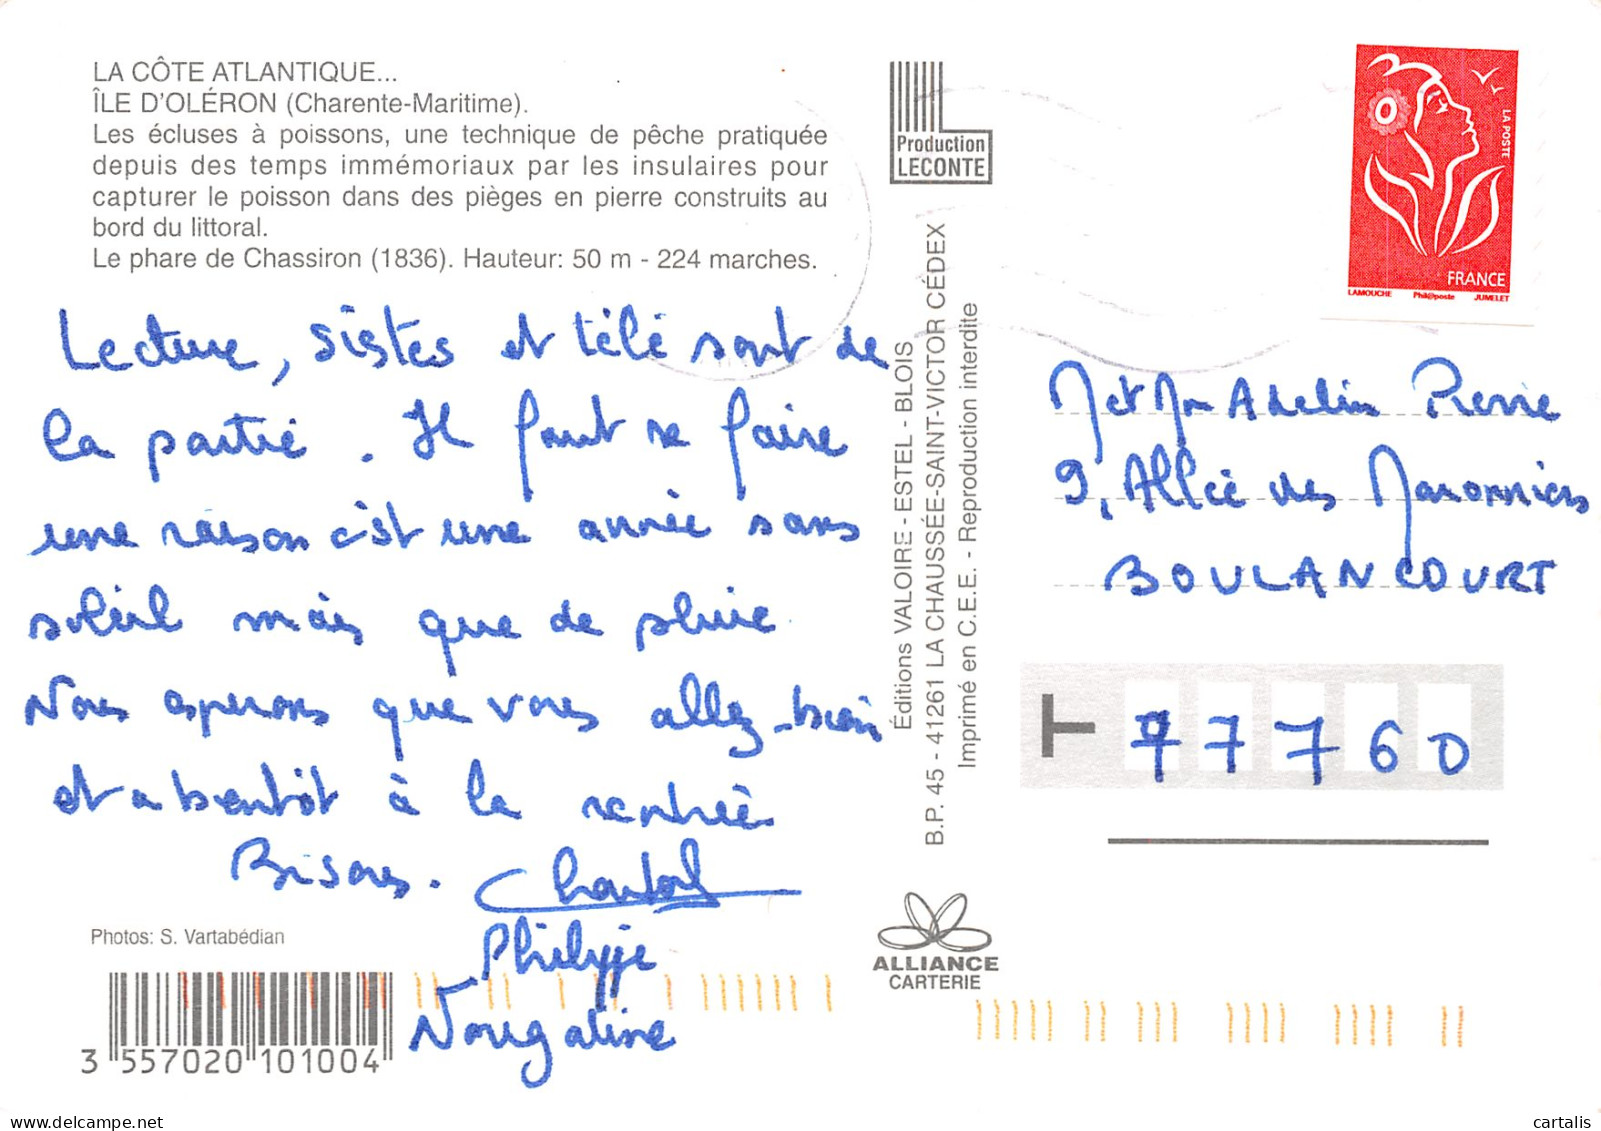 LA CÔTE ATLANTIQUE...
ÎLE D'OLÉRON (Charente-Maritime).
Les écluses à poissons, une technique de pêche pratiquée
depuis des temps immémoriaux par les insulaires pour
capturer le poisson dans des pièges en pierre construits au
bord du littoral.
Le phare de Chassiron (1836). Hauteur: 50 m - 224 marches.
Lecture, siestes et télé sont de
la partie. Il faut se faire
une raison c'est une année sans
soleil mais que de pluie
Nous esperons que vous allez bien
et a bentôt à la rentrée
Bisous. Chantal
Philippe
Nougatine
Photos: S. Vartabédian
3 557020 101004
Production
LECONTE
Éditions VALOIRE - ESTEL - BLOIS
B.P. 45 - 41261 LA CHAUSSÉE-SAINT-VICTOR CÉDEX
Imprimé en C.E.E. - Reproduction interdite
ALLIANCE
CARTERIE
LA POSTE
FRANCE
LAMOUCHE Phil@poste JUMELET
M et Mm Adelin Pierre
9, Allée des Maronniers
BOULANCOURT
T 77760
delcampe.net
cartalis